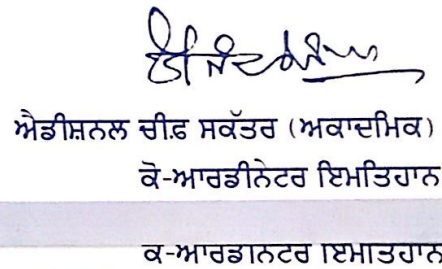 ਐਡੀਸ਼ਨਲ ਚੀਫ਼ ਸਕੱਤਰ (ਅਕਾਦਮਿਕ)
ਕੋ-ਆਰਡੀਨੇਟਰ ਇਮਤਿਹਾਨ
ਕ-ਆਰਡਾਨਟਰ ਇਮਾਤਹਾਨ